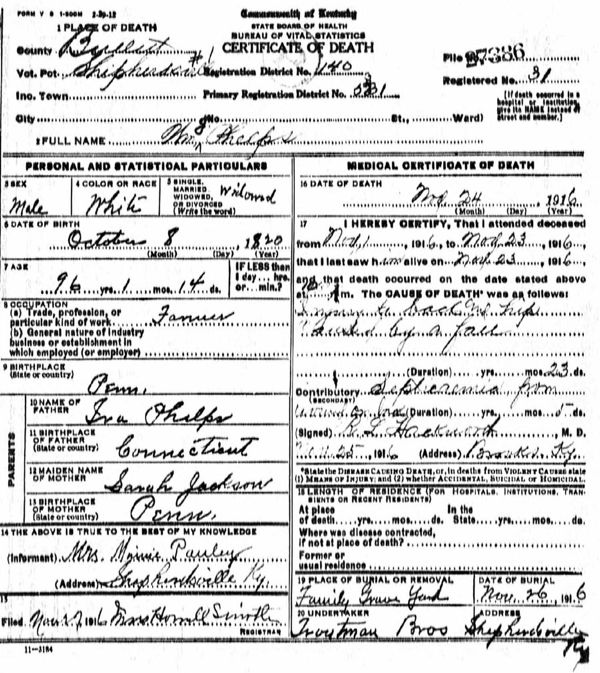 FORM V S 1-500M 2-29-12
Commonwealth of Kentucky
STATE BOARD OF HEALTH
BUREAU OF VITAL STATISTICS
CERTIFICATE OF DEATH
1 PLACE OF DEATH
County Bullitt
Vot. Pct. Shepherdsville #1
Inc. Town
City (No. St., Ward)
Registration District No. 140
Primary Registration District No.
File No. 27386
Registered No. 31
[If death occurred in a hospital or institution, give its NAME instead of street and number.]
2 FULL NAME Wm. S. Phelps
PERSONAL AND STATISTICAL PARTICULARS
3 SEX Male
4 COLOR OR RACE White
5 SINGLE, MARRIED, WIDOWED, OR DIVORCED (Write the word) Widowed
6 DATE OF BIRTH
October 8, 1820
(Month) (Day) (Year)
7 AGE
96 yrs. 1 mos. 14 ds.
IF LESS than 1 day... hrs. or... min.?
8 OCCUPATION
(a) Trade, profession, or particular kind of work Farmer
(b) General nature of industry business or establishment in which employed (or employer)
9 BIRTHPLACE
(State or country) Penn.
PARENTS
10 NAME OF FATHER Ira Phelps
11 BIRTHPLACE OF FATHER (State or country) Connecticut
12 MAIDEN NAME OF MOTHER Sarah Jackson
13 BIRTHPLACE OF MOTHER (State or country) Penn.
14 THE ABOVE IS TRUE TO THE BEST OF MY KNOWLEDGE
(Informant) Mrs. Pauley
(Address) Shepherdsville Ky.
15
Filed Nov 27, 1916
REGISTRAR
11-3184
MEDICAL CERTIFICATE OF DEATH
16 DATE OF DEATH
Nov. 24, 1916
(Month) (Day) (Year)
17 I HEREBY CERTIFY, That I attended deceased
from Nov. 1, 1916, to Nov. 23, 1916,
that I last saw him alive on Nov. 23, 1916,
and that death occurred on the date stated above
at m. The CAUSE OF DEATH* was as follows:
Injury to back
Caused by a fall
(Duration) yrs. mos. 23 ds.
Contributory (SECONDARY) Septicemia from
(Duration) yrs. mos. 5 ds.
(Signed) Hackworth, M. D.
25, 1916 (Address) Brooks Ky.
*State the DISEASE CAUSING DEATH, or, in deaths from VIOLENT CAUSES state (1) MEANS OF INJURY; and (2) whether ACCIDENTAL, SUICIDAL OR HOMICIDAL.
18 LENGTH OF RESIDENCE (FOR HOSPITALS, INSTITUTIONS, TRANSIENTS OR RECENT RESIDENTS)
At place of death yrs. mos. ds. In the State yrs. mos. ds.
Where was disease contracted, if not at place of death?
Former or usual residence
19 PLACE OF BURIAL OR REMOVAL
Family Grave Yard
DATE OF BURIAL
Nov. 26, 1916
20 UNDERTAKER
Troutman Bros
ADDRESS
Shepherdsville Ky